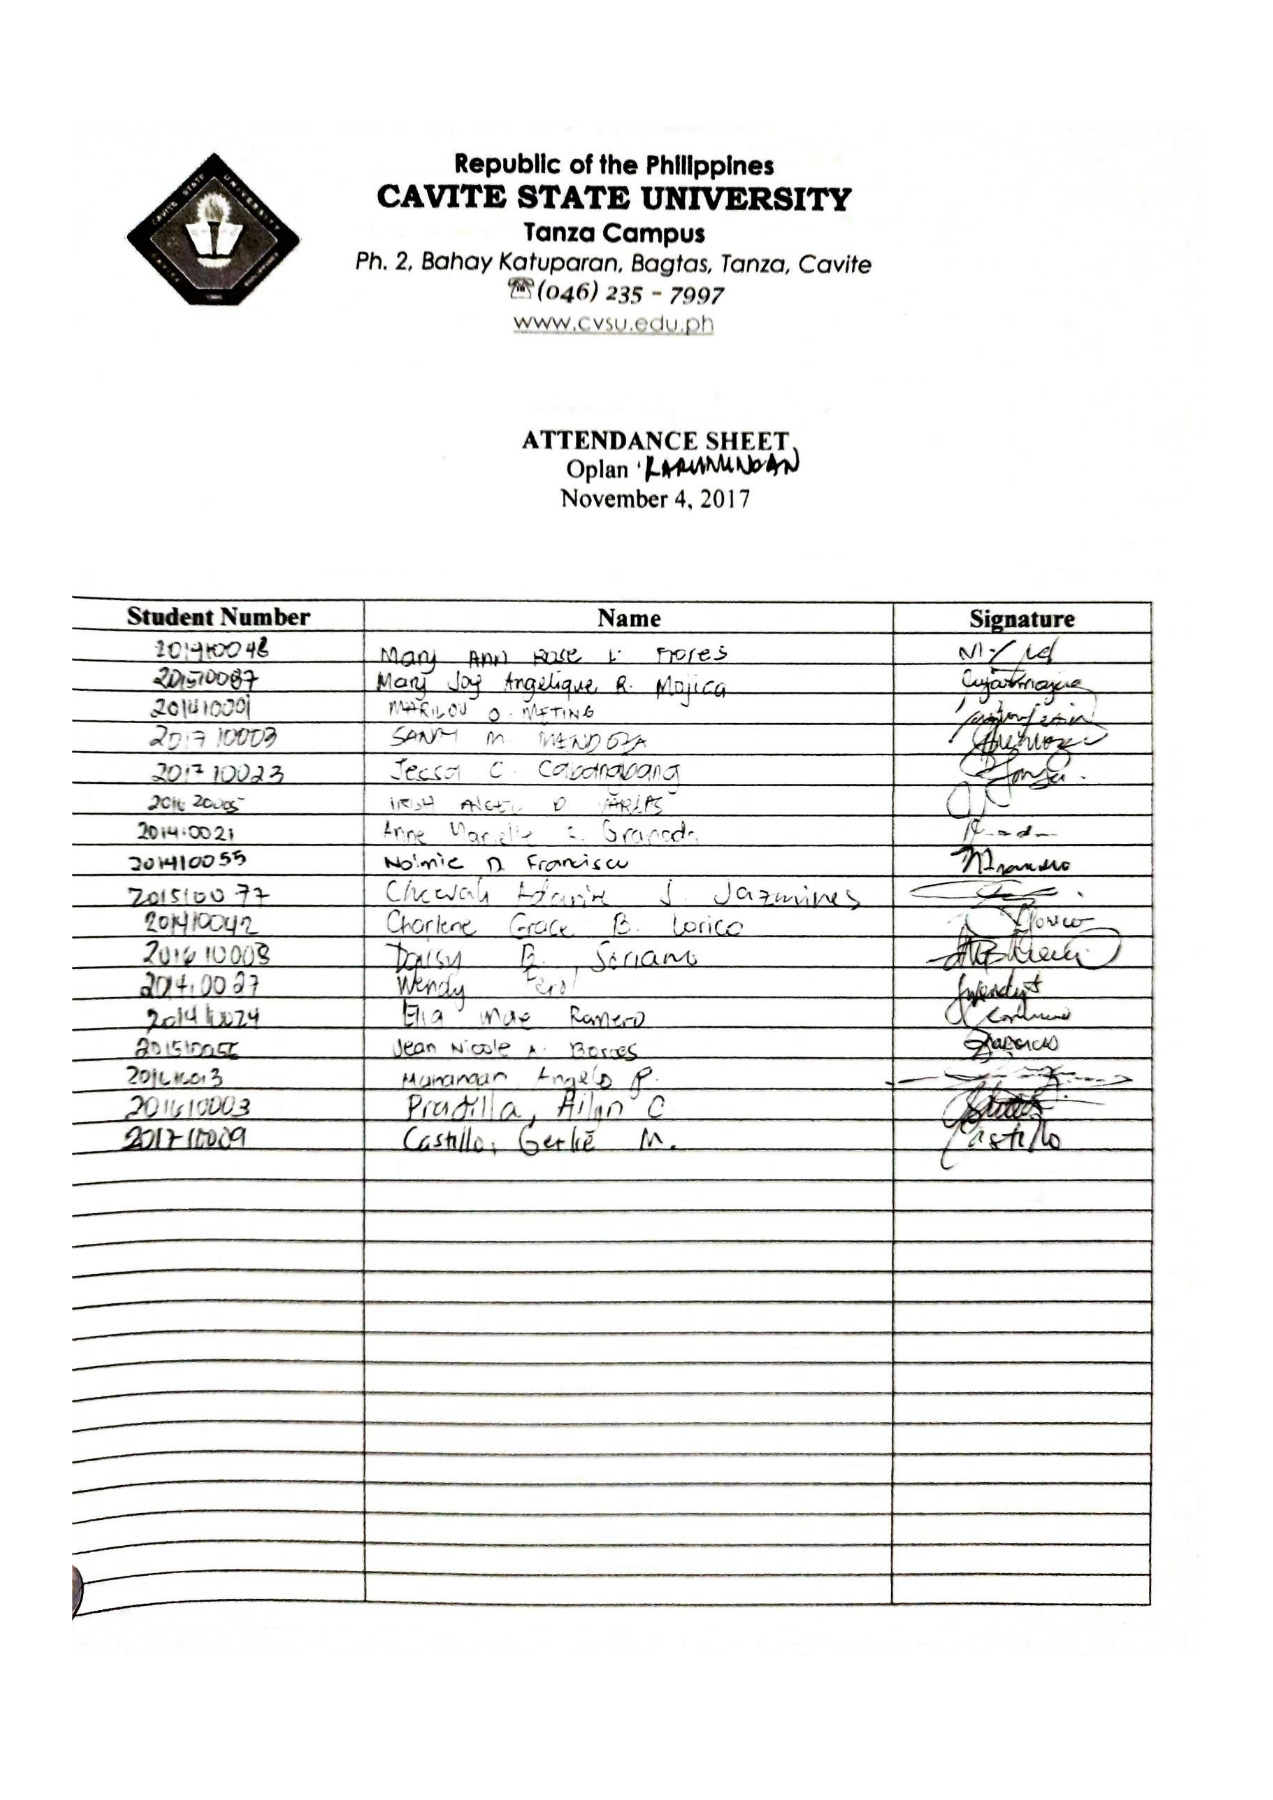 Republic of the Philippines
CAVITE STATE UNIVERSITY
Tanza Campus
Ph. 2, Bahay Katuparan, Bagtas, Tanza, Cavite
☏(046) 235 - 7997
www.cvsu.edu.ph
CAVITE STATE UNIVERSITY
ATTENDANCE SHEET
Oplan 'KARUNUNGAN'
November 4, 2017
Student Number Name Signature
201410048 Mary Ann Rose Flores
201510087 Mary Joy Angelique R. Mojica
201410001 MARILOU O. METING
201710003 M. MENDOZA
201710023 Jessa C. Cabanabang
IRISH ANGEL D. ARLAS
201410021 Anne S. Granada
201410055 Nolmie D. Francisco
201510077 J. Jazmines
201410042 Charlene Grace B. Lorico
201610008 Daisy B. Soriano
201410027 Wendy Ferol
201410024 Ella Mae Romero
Jean Nicole A. Borces
201610013 Manangan Angelo P.
201610003 Pradilla, Ailyn C
201710009 Castillo, Gerlie M. Castillo